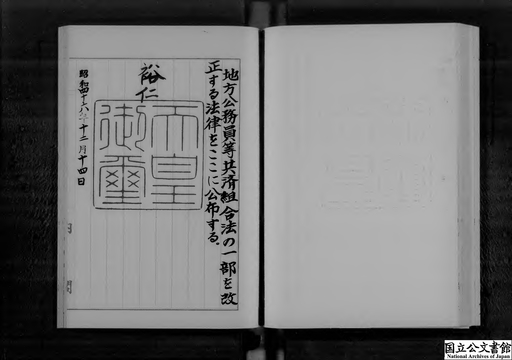 地方公務員等共済組合法の一部を改
正する法律をここに公布する。
裕仁
天皇
御璽
昭和四十六年十二月十四日
国立公文書館
National Archives of Japan